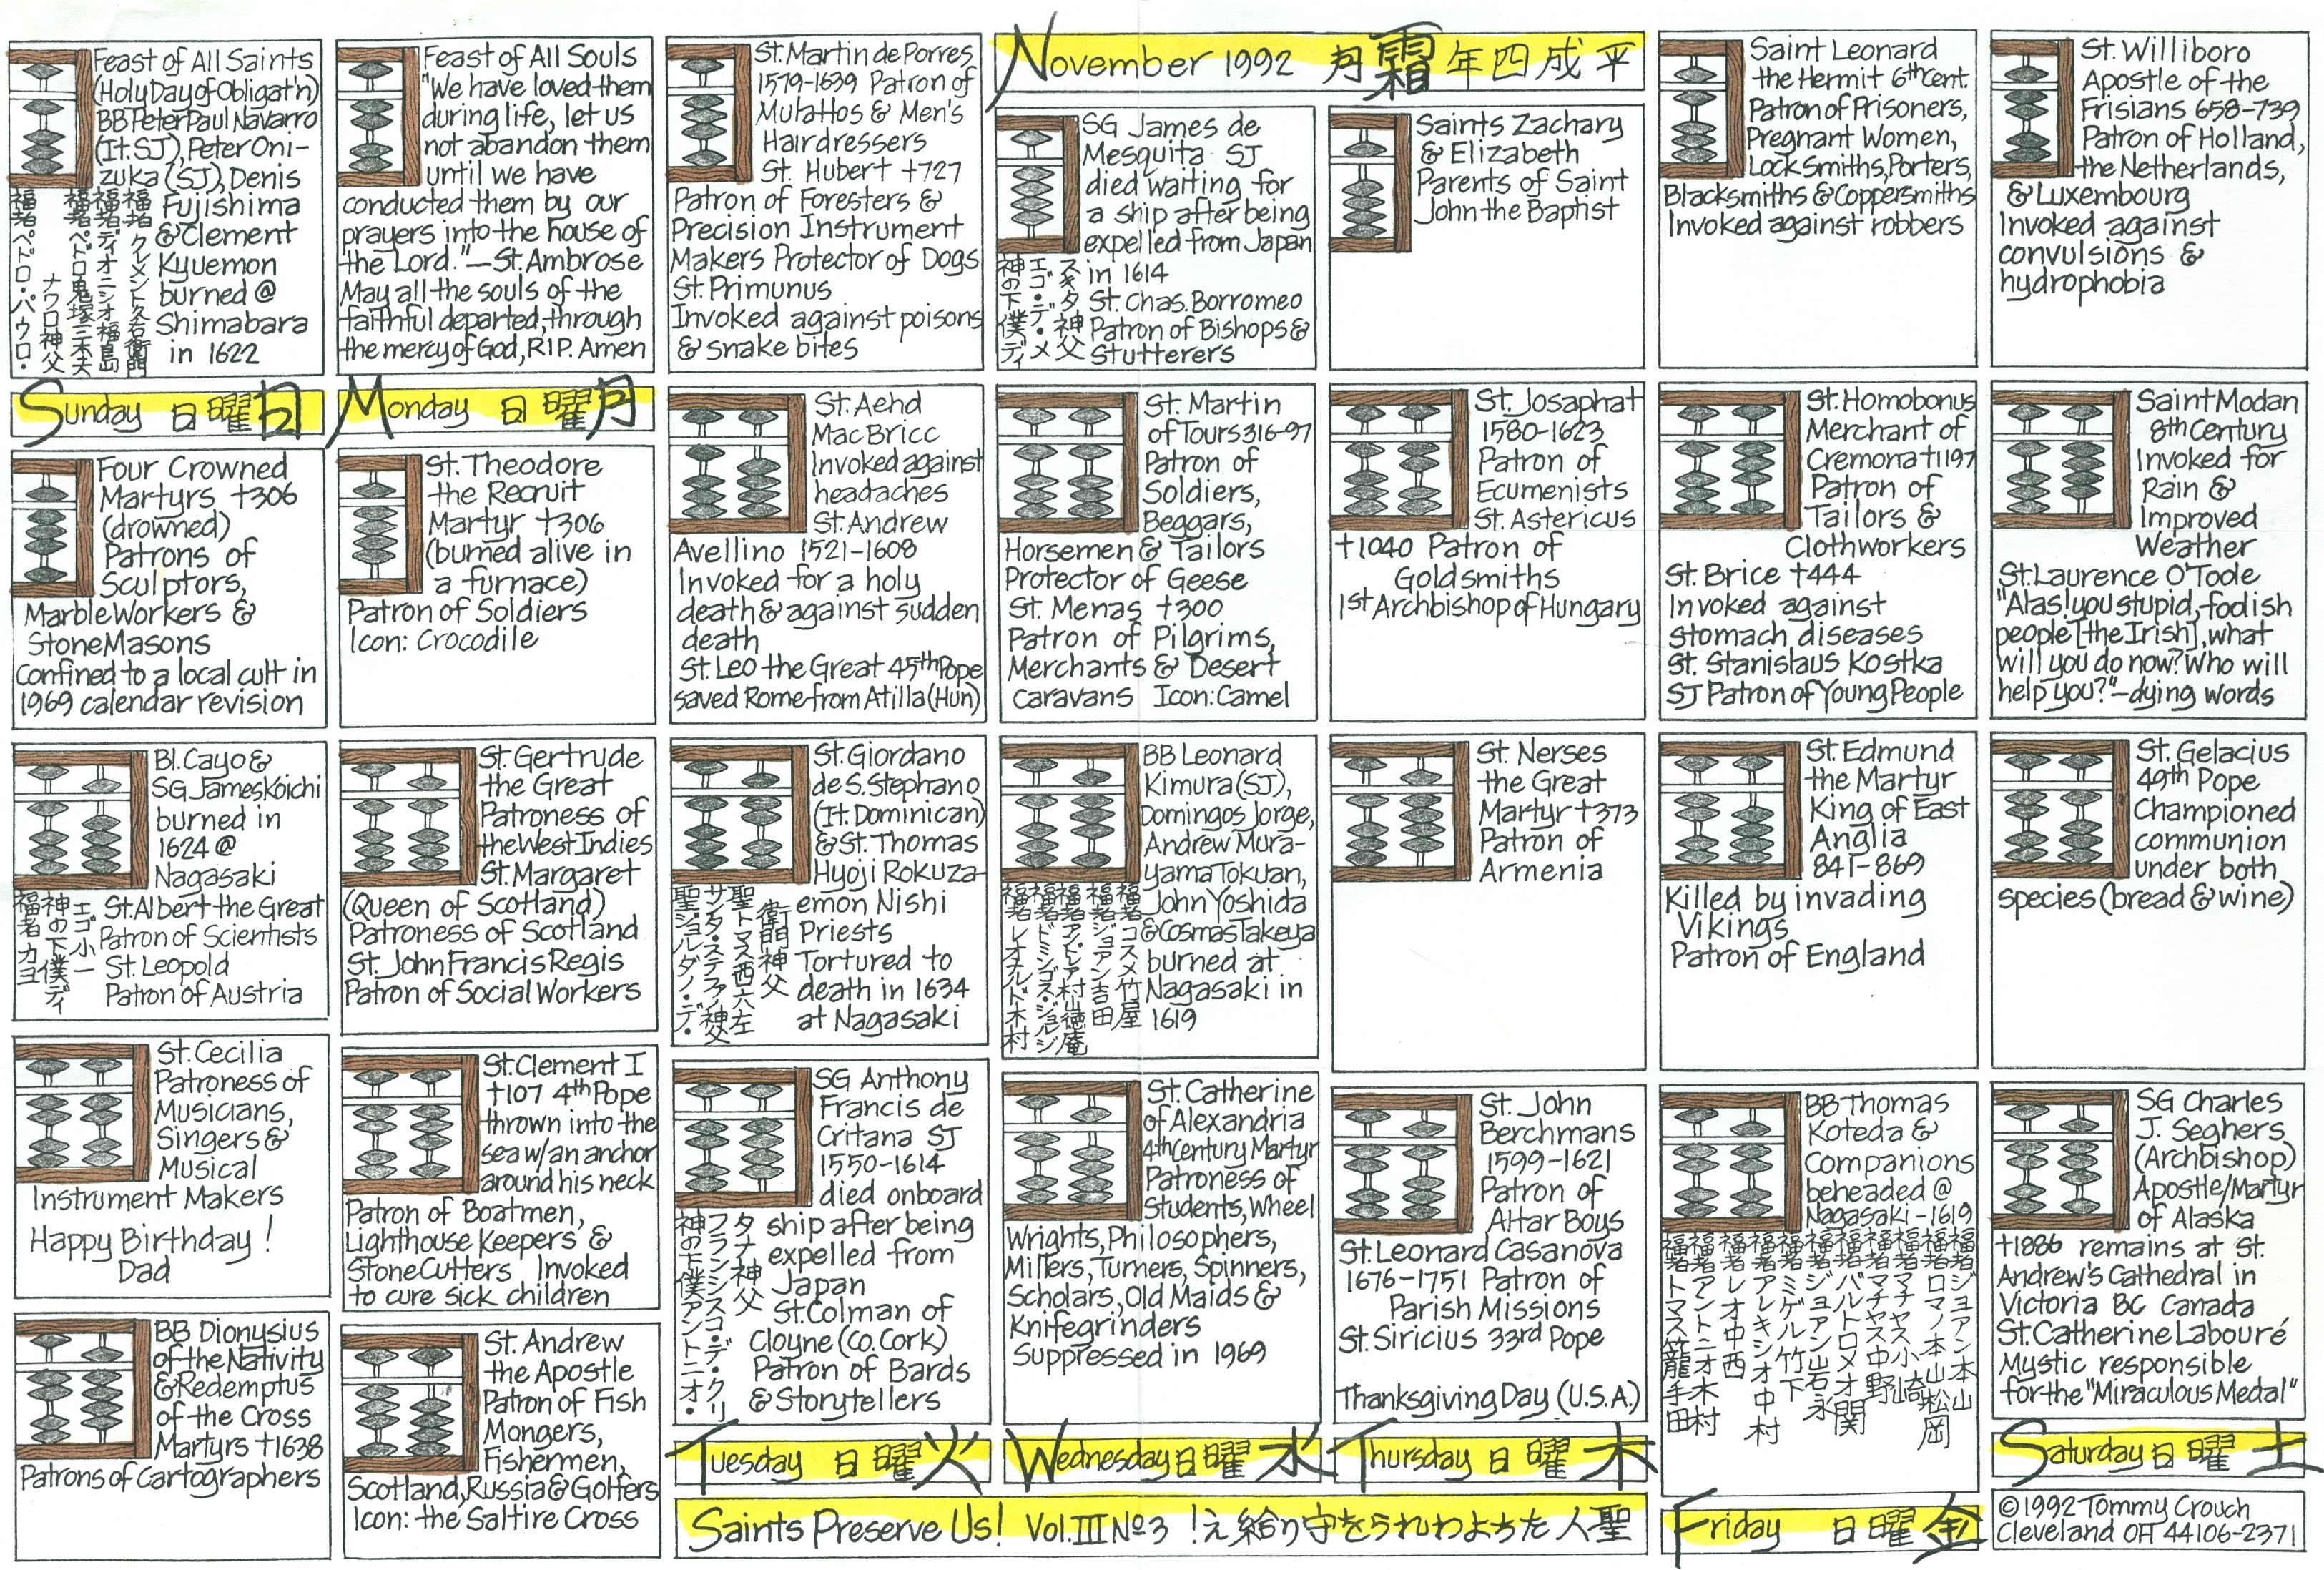 November 1992 平成四年霜月
Sunday 日曜日
Monday 月曜日
Tuesday 火曜日
Wednesday 水曜日
Thursday 木曜日
Friday 金曜日
Saturday 土曜日
Feast of All Saints
(Holy Day of Obligat'n)
BB Peter Paul Navarro
(It. SJ), Peter Oni-
zuka (SJ), Denis
Fujishima
& Clement
Kyuemon
burned @
Shimabara
in 1622
福者ペドロ・パウロ・
ナワロ神父
福者ペドロ鬼塚
福者ディオニシオ福島
福者クレメント久右衛門
Feast of All Souls
"We have loved them
during life, let us
not abandon them
until we have
conducted them by our
prayers into the house of
the Lord."—St. Ambrose
May all the souls of the
faithful departed, through
the mercy of God, RIP. Amen
St. Martin de Porres
1579-1639 Patron of
Mulattos & Men's
Hairdressers
St. Hubert †727
Patron of Foresters &
Precision Instrument
Makers Protector of Dogs
St. Primunus
Invoked against poisons
& snake bites
SG James de
Mesquita SJ
died waiting for
a ship after being
expelled from Japan
in 1614
St. Chas. Borromeo
Patron of Bishops &
Stutterers
神の下僕ディ
エゴ・デ・メ
スキタ神父
Saints Zachary
& Elizabeth
Parents of Saint
John the Baptist
Saint Leonard
the Hermit 6th Cent.
Patron of Prisoners,
Pregnant Women,
Lock Smiths, Porters,
Blacksmiths & Coppersmiths
Invoked against robbers
St. Williboro
Apostle of the
Frisians 658-739
Patron of Holland,
the Netherlands,
& Luxembourg
Invoked against
convulsions &
hydrophobia
Four Crowned
Martyrs †306
(drowned)
Patrons of
Sculptors,
Marble Workers &
Stone Masons
Confined to a local cult in
1969 calendar revision
St. Theodore
the Recruit
Martyr †306
(burned alive in
a furnace)
Patron of Soldiers
Icon: Crocodile
St. Aehd
Mac Bricc
Invoked against
headaches
St. Andrew
Avellino 1521-1608
Invoked for a holy
death & against sudden
death
St. Leo the Great 45th Pope
saved Rome from Atilla (Hun)
St. Martin
of Tours 316-97
Patron of
Soldiers,
Beggars,
Horsemen & Tailors
Protector of Geese
St. Menas †300
Patron of Pilgrims,
Merchants & Desert
caravans Icon: Camel
St. Josaphat
1580-1623
Patron of
Ecumenists
St. Astericus
†1040 Patron of
Goldsmiths
1st Archbishop of Hungary
St. Homobonus
Merchant of
Cremona †1197
Patron of
Tailors &
Clothworkers
St. Brice †444
Invoked against
stomach diseases
St. Stanislaus Kostka
SJ Patron of Young People
Saint Modan
8th Century
Invoked for
Rain &
Improved
Weather
St. Laurence O'Toole
"Alas! you stupid, foolish
people [the Irish], what
will you do now? Who will
help you?"—dying words
Bl. Cayo &
SG James Koichi
burned in
1624 @
Nagasaki
St. Albert the Great
Patron of Scientists
St. Leopold
Patron of Austria
福者カヨ
神の下僕ディ
エゴ小一
St. Gertrude
the Great
Patroness of
the West Indies
St. Margaret
(Queen of Scotland)
Patroness of Scotland
St. John Francis Regis
Patron of Social Workers
St. Giordano
de S. Stephano
(It. Dominican)
& St. Thomas
Hyoji Rokuza-
emon Nishi
Priests
Tortured to
death in 1634
at Nagasaki
聖ジョルダノ・デ・
サンタ・ステファノ神父
聖トマス西六左
衛門神父
BB Leonard
Kimura (SJ),
Domingos Jorge,
Andrew Mura-
yama Tokuan,
John Yoshida
& Cosmas Takeya
burned at
Nagasaki in
1619
福者レオナルド木村
福者ドミンゴス・ジョルジ
福者アンドレア村山徳庵
福者ジョアン吉田
福者コスメ竹屋
St. Nerses
the Great
Martyr †373
Patron of
Armenia
St. Edmund
the Martyr
King of East
Anglia
841-869
Killed by invading
Vikings
Patron of England
St. Gelacius
49th Pope
Championed
communion
under both
species (bread & wine)
St. Cecilia
Patroness of
Musicians,
Singers &
Musical
Instrument Makers
Happy Birthday!
Dad
St. Clement I
†107 4th Pope
thrown into the
sea w/an anchor
around his neck
Patron of Boatmen,
Lighthouse Keepers &
Stone Cutters Invoked
to cure sick children
SG Anthony
Francis de
Critana SJ
1550-1614
died onboard
ship after being
expelled from
Japan
St. Colman of
Cloyne (Co. Cork)
Patron of Bards
& Storytellers
神の下僕アントニオ・
フランシスコ・デ・クリ
タナ神父
St. Catherine
of Alexandria
4th Century Martyr
Patroness of
Students, Wheel
Wrights, Philosophers,
Millers, Turners, Spinners,
Scholars, Old Maids &
Knifegrinders
Suppressed in 1969
St. John
Berchmans
1599-1621
Patron of
Altar Boys
St. Leonard Casanova
1676-1751 Patron of
Parish Missions
St. Siricius 33rd Pope
Thanksgiving Day (U.S.A.)
BB Thomas
Koteda &
Companions
beheaded @
Nagasaki - 1619
福者トマス籠手田
福者アントニオ木村
福者レオ中西
福者アレキシオ中村
福者ミゲル竹下
福者ジョアン岩永
福者バルトロメオ関
福者マチヤス中野
福者マチヤス小崎
福者ロマノ本山松岡
福者ジョアン本山
SG Charles
J. Seghers
(Archbishop)
Apostle/Martyr
of Alaska
†1886 remains at St.
Andrew's Cathedral in
Victoria BC Canada
St. Catherine Labouré
Mystic responsible
for the "Miraculous Medal"
BB Dionysius
of the Nativity
& Redemptus
of the Cross
Martyrs †1638
Patrons of Cartographers
St. Andrew
the Apostle
Patron of Fish
Mongers,
Fishermen,
Scotland, Russia & Golfers
Icon: the Saltire Cross
Saints Preserve Us! Vol. III Nº3 聖人たちよわれらを守り給え!
©1992 Tommy Crouch
Cleveland OH 44106-2371